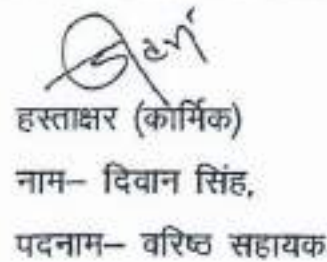 हस्ताक्षर (कार्मिक)
नाम– दिवान सिंह,
पदनाम– वरिष्ठ सहायक